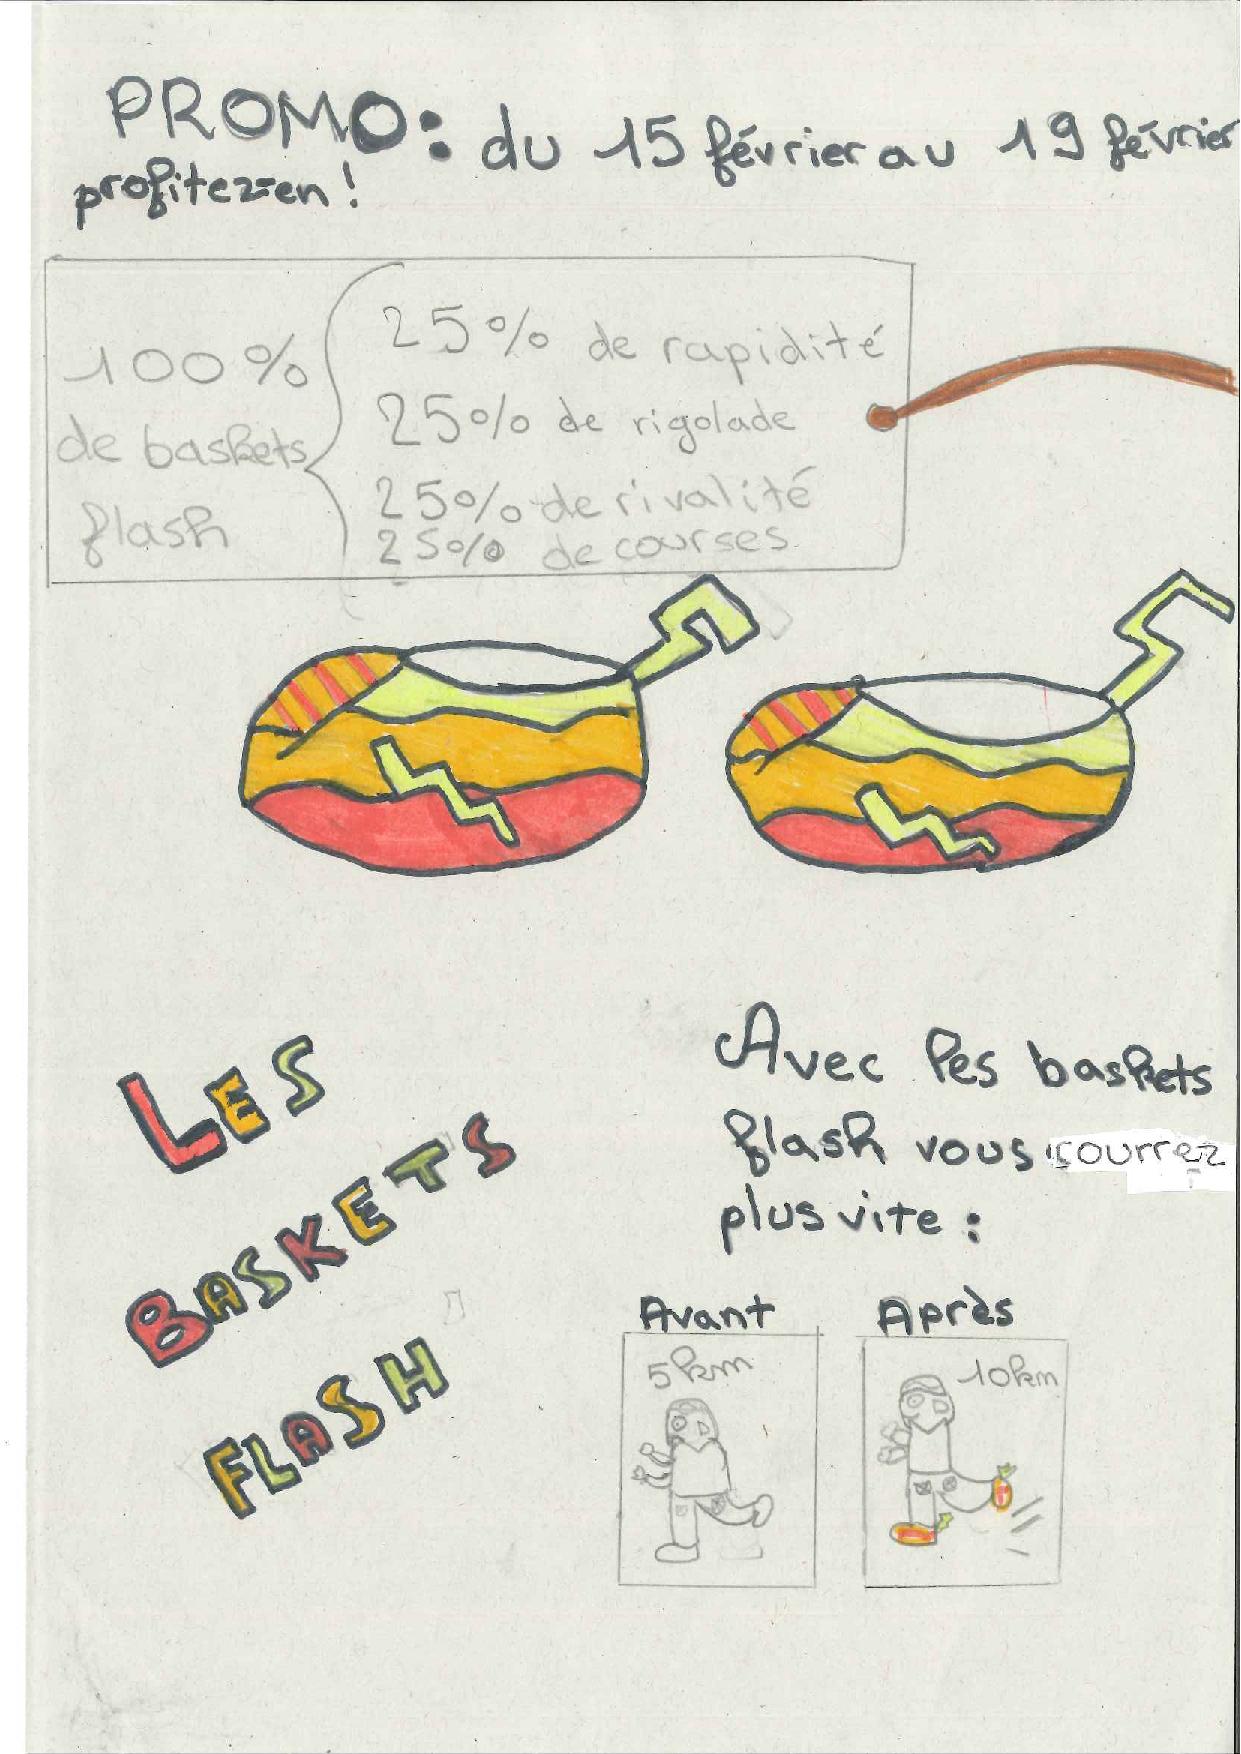 PROMO: du 15 février au 19 février
profitez-en !
100%
de baskets
flash
25% de rapidité
25% de rigolade
25% de rivalité
25% de courses
LES
BASKETS
FLASH
Avec les baskets
flash vous courrez
plus vite :
Avant
5km
Après
10km